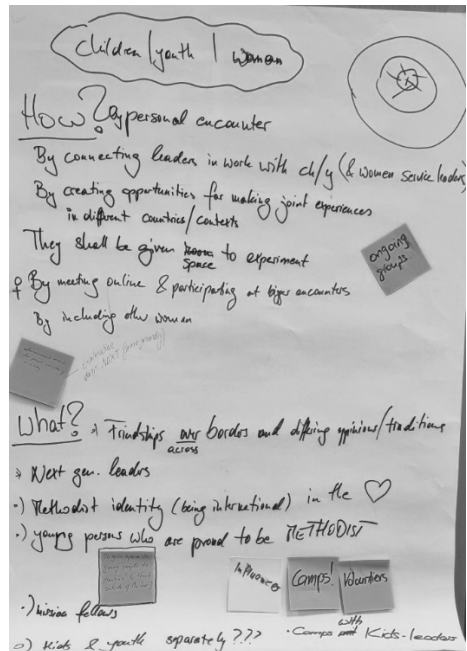 children / youth / women
How? By personal encounter
By connecting leaders in work with ch/y (& women service leaders)
By creating opportunities for making joint experiences
in different countries/contexts
They shall be given space to experiment
ongoing
groups
♀ By meeting online & participating at bigger encounters
By including other women
What? Friendships across borders and differing opinions/traditions
Next gen. leaders
·) Methodist identity (being international) in the ♡
·) young persons who are proud to be METHODIST
Influencer
Camps!
Volunteers
·) mission fellows
· Camps with Kids-leaders
o) Kids & youth separately ???